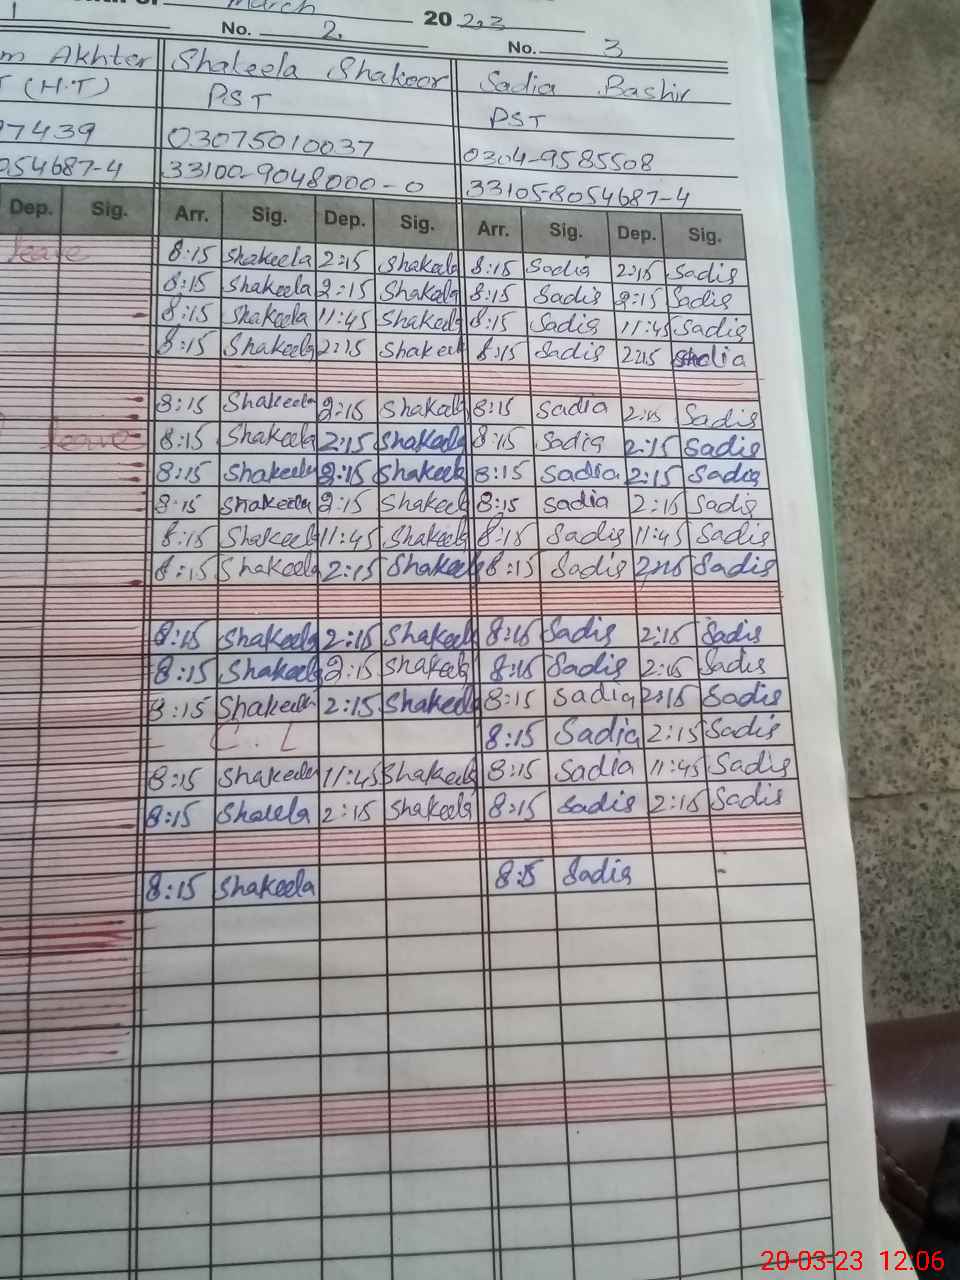 March 2023
1 No. 2. No. 3
m Akhter Shakeela Shakoor Sadia Bashir
T (H.T) PST PST
97439 03075010037 0304-9585508
054687-4 33100-9048000-0 33105-8054687-4
Dep. Sig. Arr. Sig. Dep. Sig. Arr. Sig. Dep. Sig.
leave 8:15 Shakeela 2:15 Shakeela 8:15 Sadia 2:15 Sadia
8:15 Shakeela 2:15 Shakeela 8:15 Sadia 2:15 Sadia
8:15 Shakeela 11:45 Shakeela 8:15 Sadia 11:45 Sadia
8:15 Shakeela 2:15 Shakeel 8:15 Sadia 2:15 Sadia
8:15 Shakeela 2:15 Shakeela 8:15 Sadia 2:15 Sadia
leave 8:15 Shakeela 2:15 Shakeela 8:15 Sadia 2:15 Sadia
8:15 Shakeela 2:15 Shakeela 8:15 Sadia 2:15 Sadia
8:15 Shakeela 2:15 Shakeela 8:15 Sadia 2:15 Sadia
8:15 Shakeela 11:45 Shakeela 8:15 Sadia 11:45 Sadia
8:15 Shakeela 2:15 Shakeela 8:15 Sadia 2:15 Sadia
8:15 Shakeela 2:15 Shakeela 8:15 Sadia 2:15 Sadia
8:15 Shakeela 2:15 Shakeela 8:15 Sadia 2:15 Sadia
8:15 Shakeela 2:15 Shakeela 8:15 Sadia 2:15 Sadia
C. L 8:15 Sadia 2:15 Sadia
8:15 Shakeela 11:45 Shakeela 8:15 Sadia 11:45 Sadia
8:15 Shakeela 2:15 Shakeela 8:15 Sadia 2:15 Sadia
8:15 Shakeela 8:15 Sadia
20-03-23 12:06